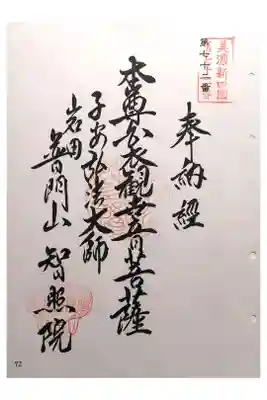 美濃新四国
第七十二番
奉納経
本尊白衣観世音菩薩
子安弘法大師
岩田 普門山 智照院
72